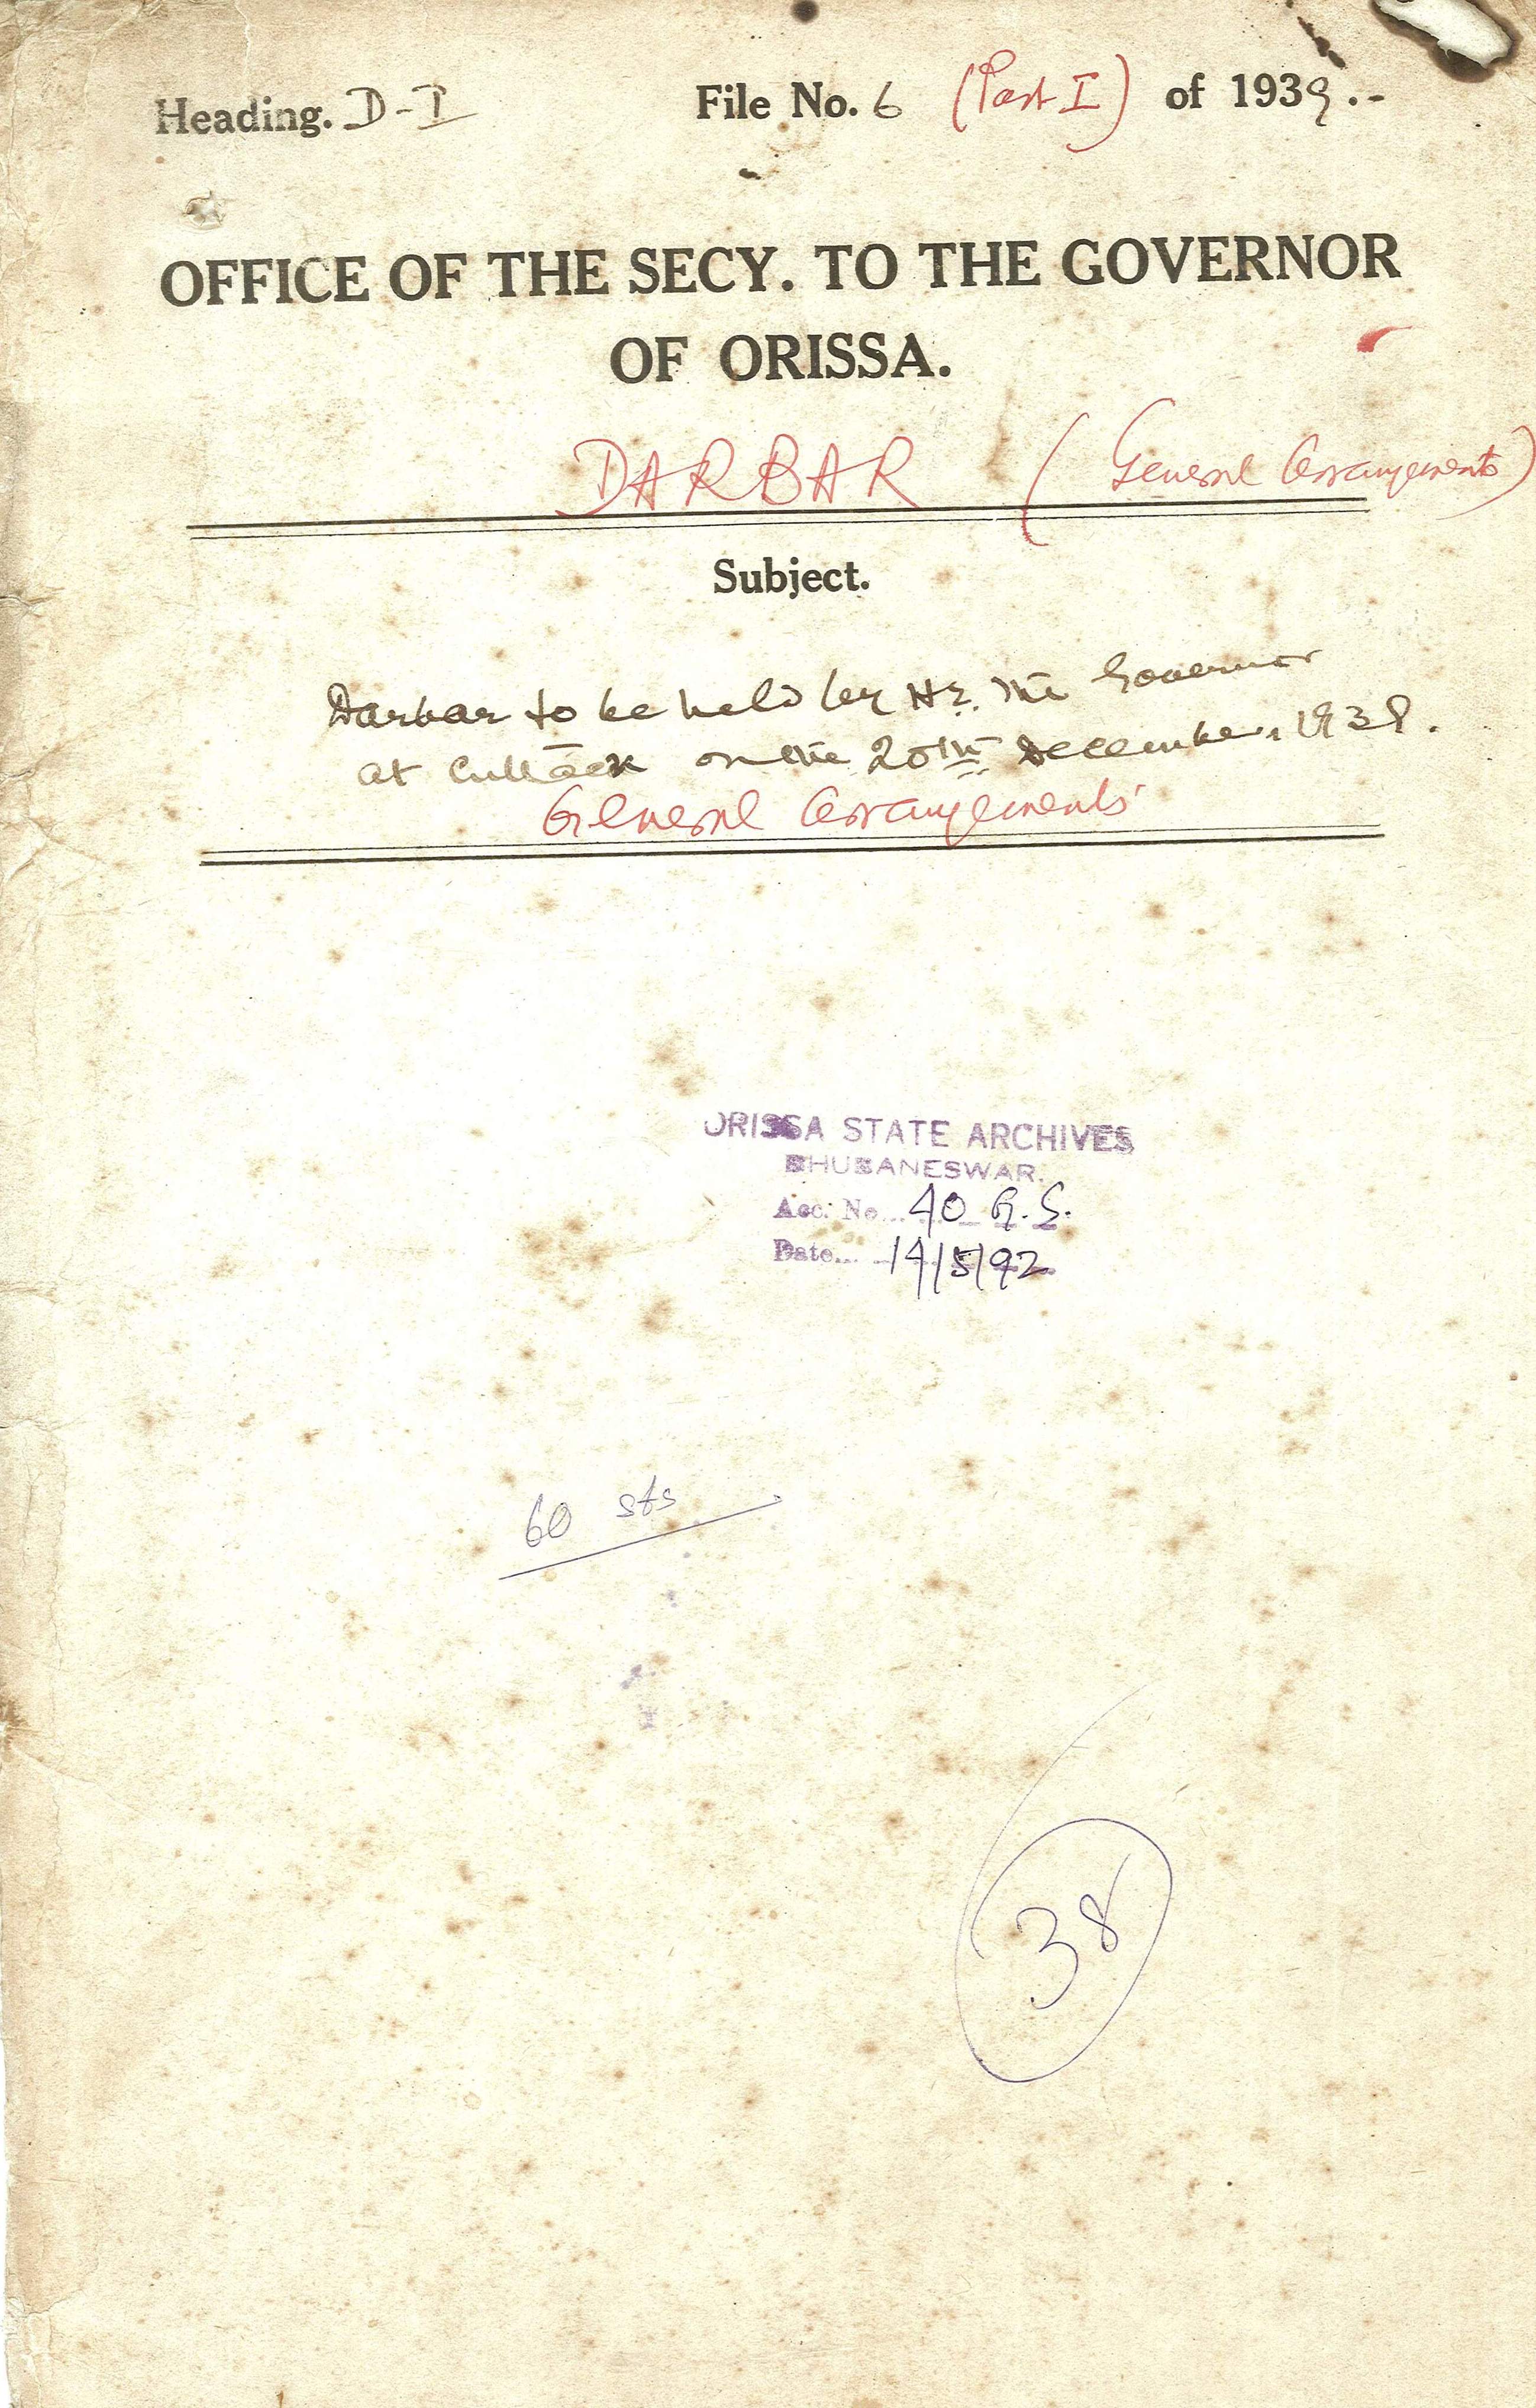 Heading. D-I File No. 6 (Part I) of 1939.-
OFFICE OF THE SECY. TO THE GOVERNOR
OF ORISSA.
DARBAR (General Arrangements)
Subject.
Darbar to be held by H.E. the Governor
at Cuttack on the 20th December, 1938.
General Arrangements
ORISSA STATE ARCHIVES
BHUBANESWAR.
Acc. No... 40 G.S.
Date... 14/5/92
60 sts
38